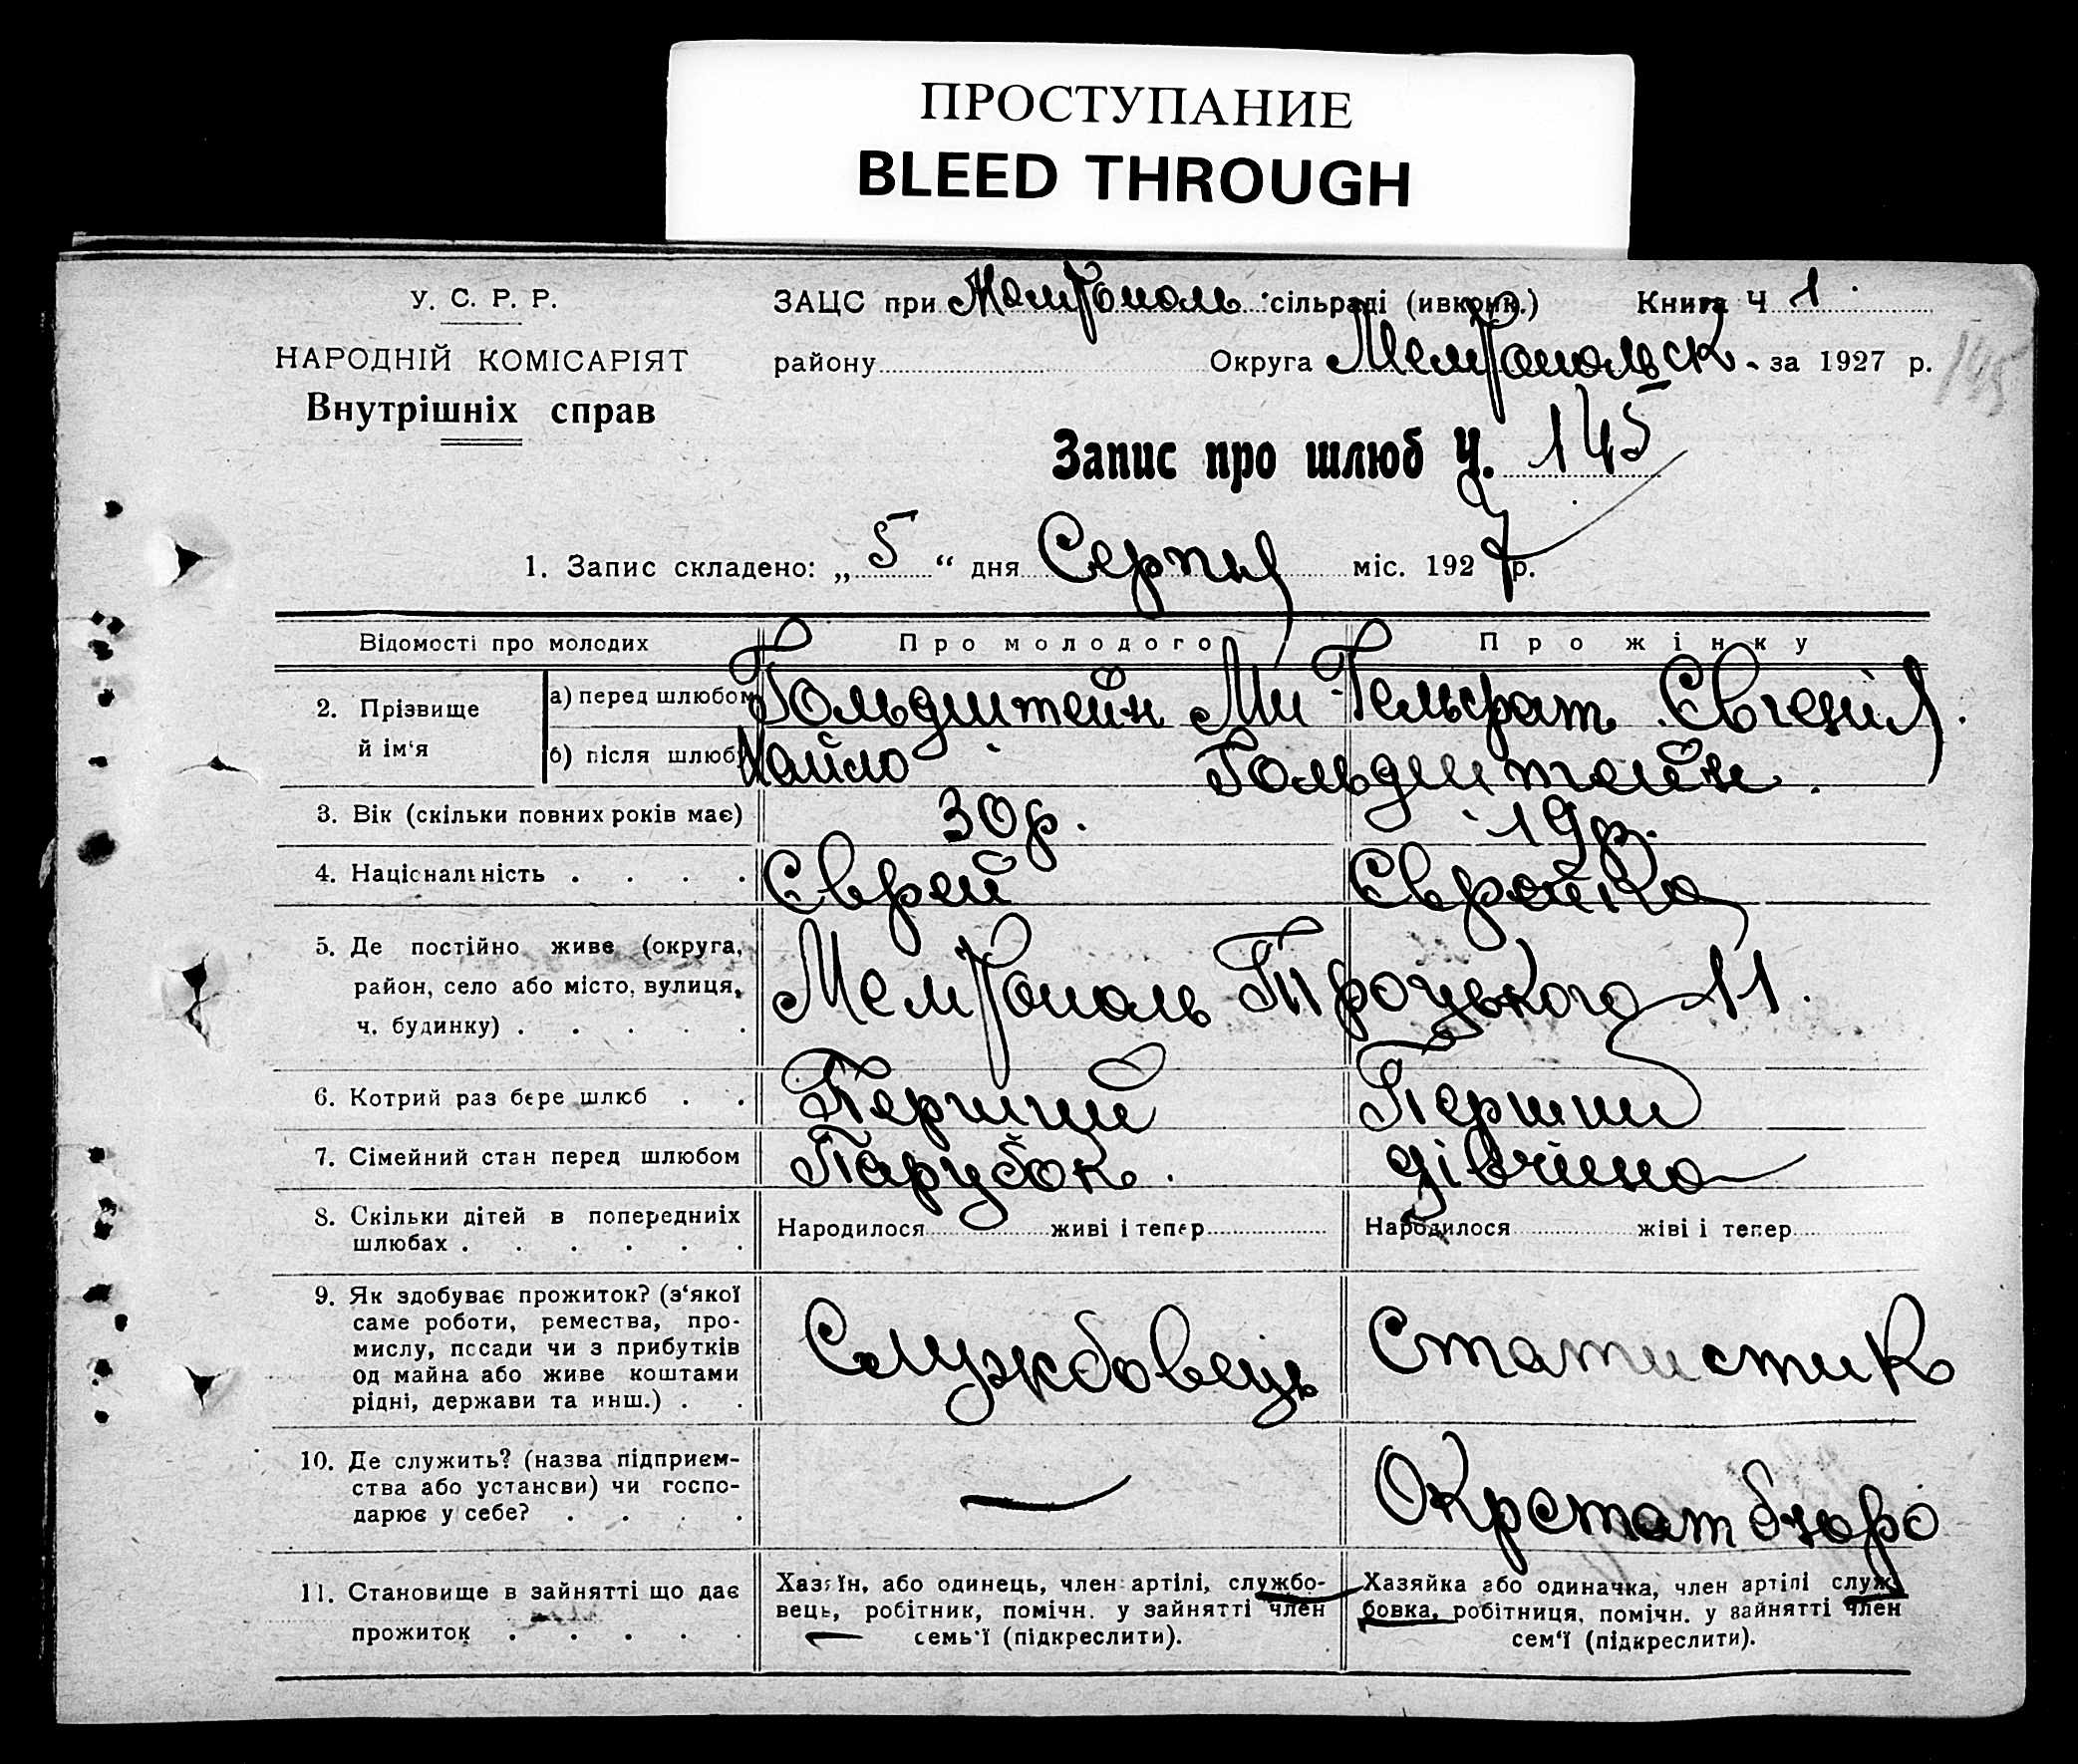 ПРОСТУПАНИЕ
BLEED THROUGH
У. С. Р. Р.
НАРОДНІЙ КОМІСАРІЯТ
Внутрішніх справ
ЗАЦС при Мелітополь сільраді (ивкрик.) Книга Ч 1
району Округа Мелітопольск. за 1927 р.
145
Запис про шлюб Ч. 145
1. Запис складено: „5“ дня Серпня міс. 1927 р.
Відомості про молодих Про молодого Про жінку
2. Прізвище й ім‘я
а) перед шлюбом Гольдштейн Ми Гельфат Євгенія.
б) після шлюбу хайло Гольдштейн.
3. Вік (скільки повних років має) 30 р. 19 р.
4. Національність . . . . Єврей Єврейка
5. Де постійно живе (округа,
район, село або місто, вулиця,
ч. будинку) . . . . .
Мелітополь Троцького 11.
6. Котрий раз бере шлюб . . Перший Перший
7. Сімейний стан перед шлюбом Парубок. дівчина
8. Скільки дітей в попередниіх
шлюбах . . . . . .
Народилося живі і тепер Народилося жіві і тепер
9. Як здобуває прожиток? (з‘якої
саме роботи, ремества, про-
мислу, посади чи з прибутків
од майна або живе коштами
рідні, держави та инш.) . .
Службовець Статистик
10. Де служить? (назва підприєм-
ства або установи) чи госпо-
дарює у себе? . . . .
— Окрстат бюро
11. Становище в зайнятті що дає
прожиток . . . . .
Хазяїн, або одинець, член артілі, службо-
вець, робітник, помічн. у зайнятті член
семь‘ї (підкреслити).
Хазяйка або одиначка, член артілі служ-
бовка, робітниця, помічн. у зайнятті член
сем‘ї (підкреслити).